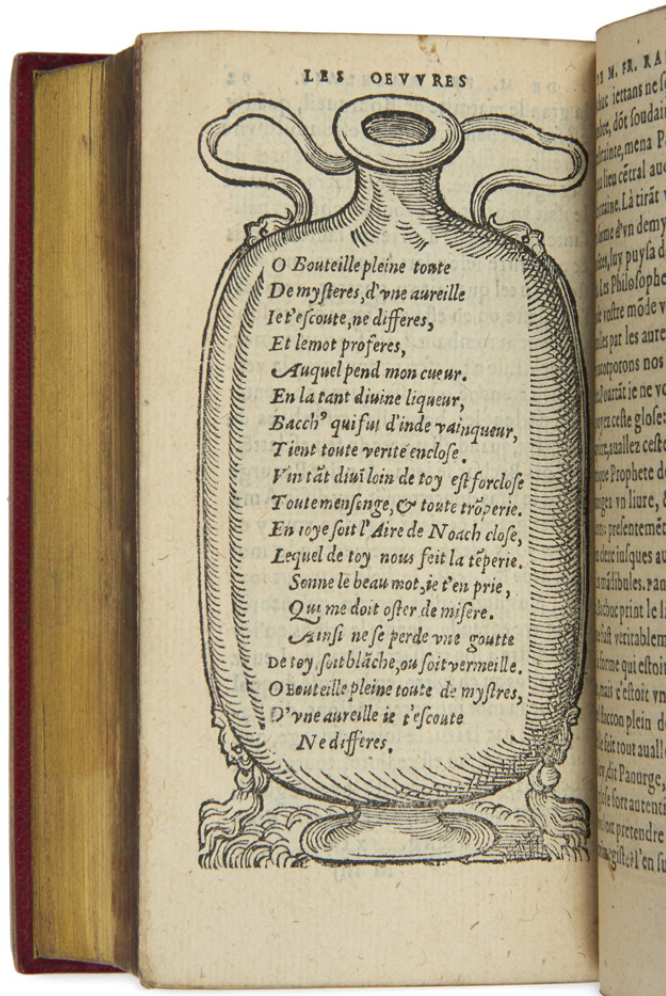 LES OEVVRES
O Bouteille pleine toute
De myſteres, d'vne aureille
Ie t'eſcoute, ne differes,
Et le mot proferes,
Auquel pend mon cueur.
En la tant diuine liqueur,
Bacchꝰ qui fut d'inde vainqueur,
Tient toute verité encloſe.
Vin tãt diuĩ loin de toy eſt forcloſe
Toute menſonge, & toute trõperie.
En ioye ſoit l'Aire de Noach cloſe,
Lequel de toy nous feit la tẽperie.
Sonne le beau mot, ie t'en prie,
Qui me doit oſter de miſere.
Ainſi ne ſe perde vne goutte
De toy, ſoit blãche, ou ſoit vermeille.
O Bouteille pleine toute de myſtres,
D'vne aureille ie t'eſcoute
Ne differes.
M. FR.
iettans ne
dõt ſoudai
mena
lieu cẽtral
Là tirãt
d'vn demy
luy puyſa
Les Philoſophe
voſtre mõde
par les
nos
ie ne
ceſte gloſe
auallez ceſte
Prophete
vn liure,
preſentemẽt
iuſques au
mãdibules.
print le
veritablem
forme qui eſtoit
mais c'eſtoit vn
plein
feit tout
dit Panurge,
fort
pretendre
l'en